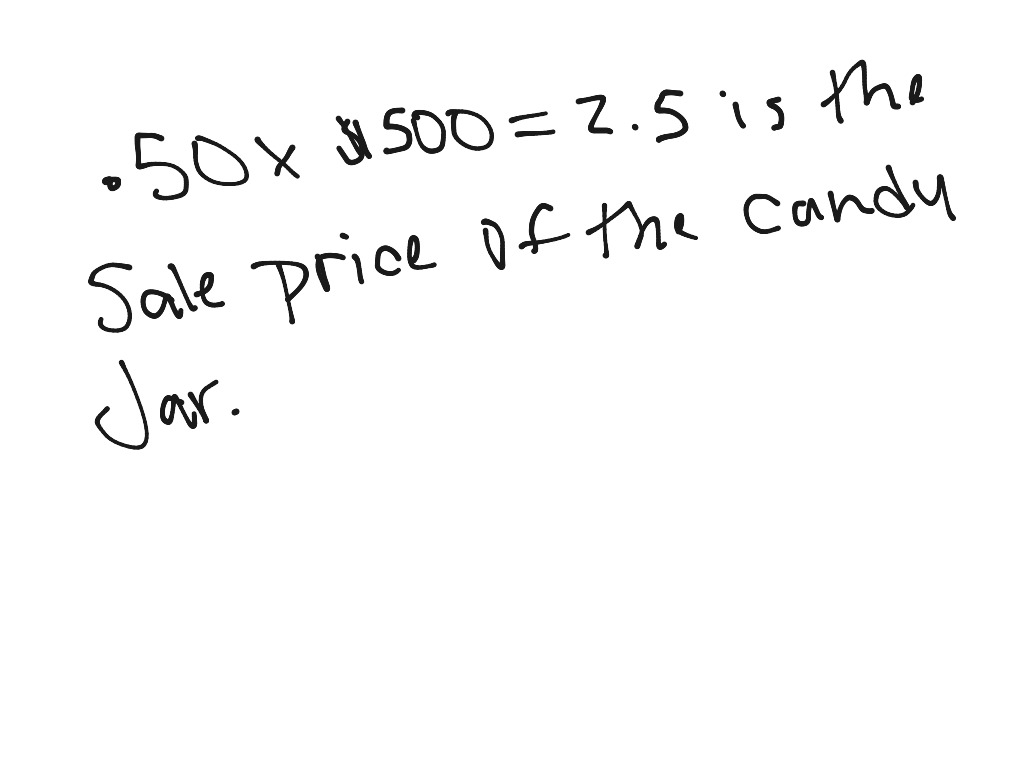 .50 x $500 = 2.5 is the
Sale price of the candy
Jar.